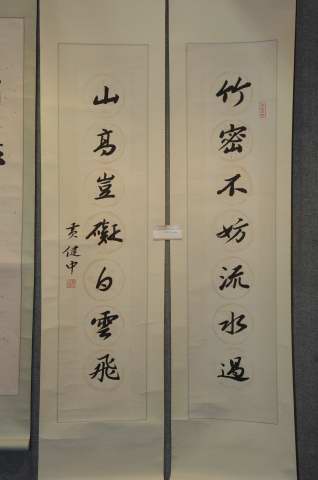 竹密不妨流水過
山高豈礙白雲飛
黄健中